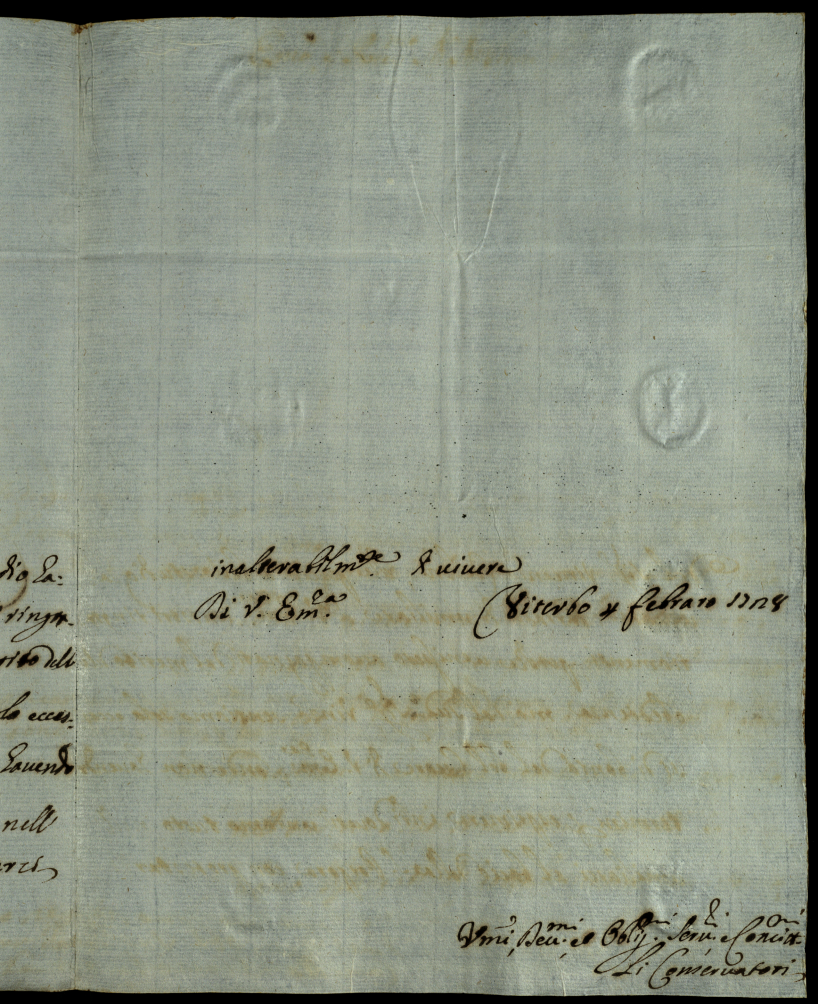 dio ha:
ringr-
rito dell
la ecces:
havendo
nell
inalterabilm.te di vivere
Di V. Em.za
Viterbo 4 febraro 1728
Vmi, Devmi et Obligmi Servi e Concittni
Li Conservatori